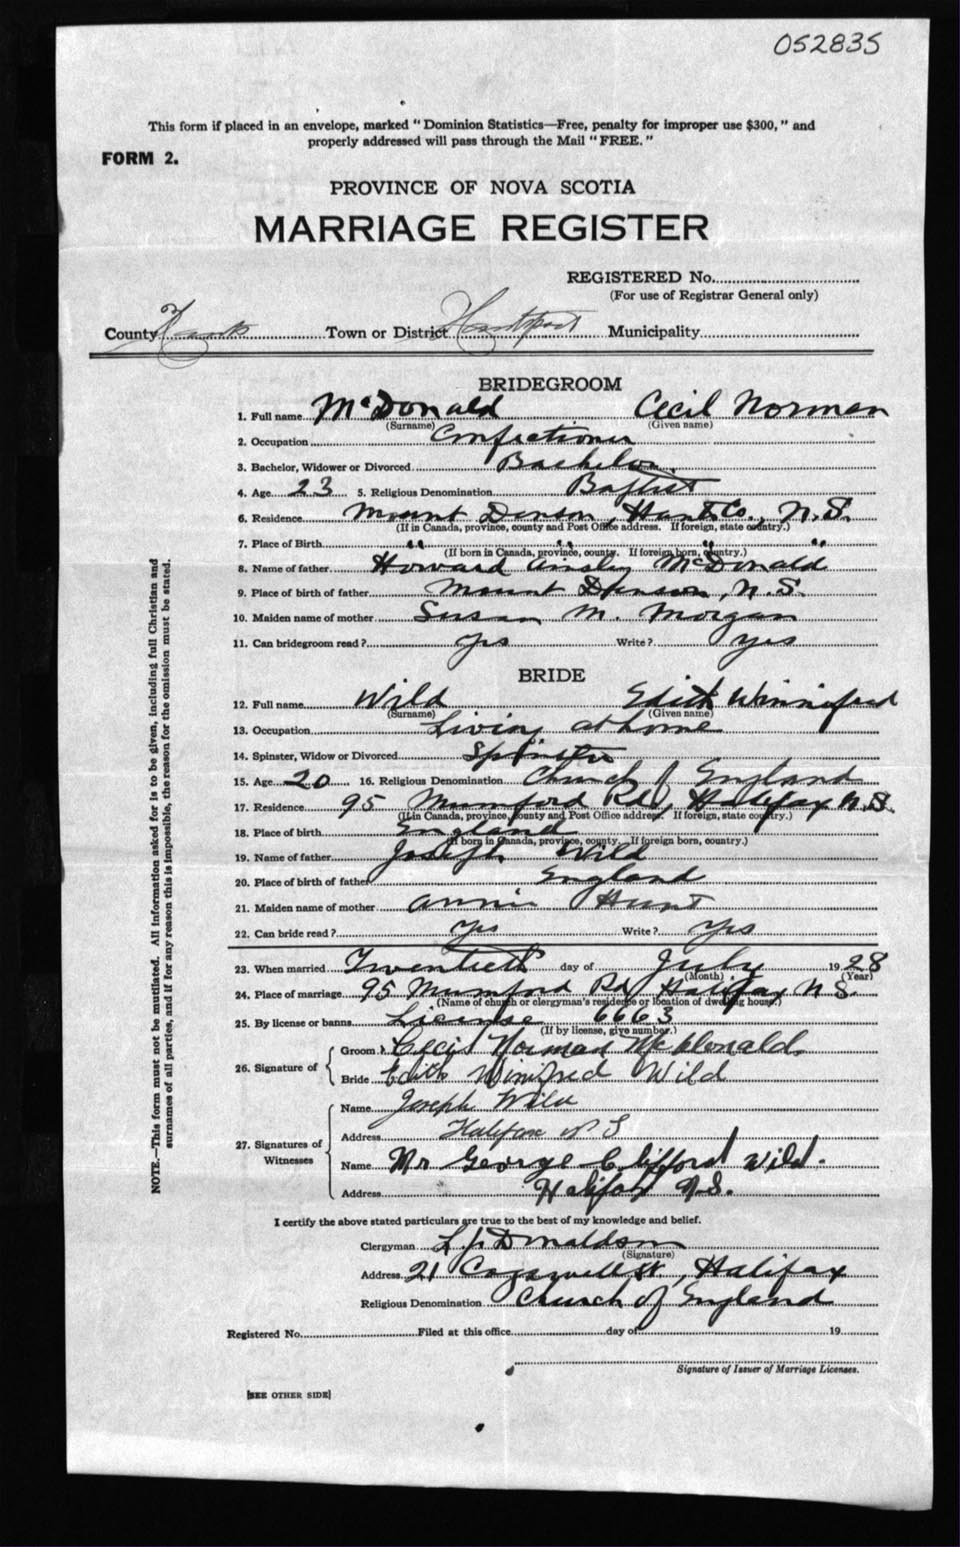 052835
This form if placed in an envelope, marked "Dominion Statistics—Free, penalty for improper use $300," and
properly addressed will pass through the Mail "FREE."
FORM 2.
PROVINCE OF NOVA SCOTIA
MARRIAGE REGISTER
REGISTERED No.
(For use of Registrar General only)
County Hants Town or District Hantsport Municipality
BRIDEGROOM
1. Full name McDonald Cecil Norman
(Surname) (Given name)
2. Occupation Confectioner
3. Bachelor, Widower or Divorced Bachelor
4. Age 23 5. Religious Denomination Baptist
6. Residence Mount Denson, Hants Co., N.S.
(If in Canada, province, county and Post Office address. If foreign, state country.)
7. Place of Birth " " " "
(If born in Canada, province, county. If foreign born, country.)
8. Name of father Howard Ainsley McDonald
9. Place of birth of father Mount Denson, N.S.
10. Maiden name of mother Susan M. Morgan
11. Can bridegroom read? yes Write? yes
BRIDE
12. Full name Wild Edith Winnifred
(Surname) (Given name)
13. Occupation Living at home
14. Spinster, Widow or Divorced Spinster
15. Age 20 16. Religious Denomination Church of England
17. Residence 95 Mumford Rd, Halifax N.S.
(If in Canada, province, county and Post Office address. If foreign, state country.)
18. Place of birth England
(If born in Canada, province, county. If foreign born, country.)
19. Name of father Joseph Wild
20. Place of birth of father England
21. Maiden name of mother Annie Hunt
22. Can bride read? Yes Write? Yes
23. When married Twentieth day of July 1928
(Month) (Year)
24. Place of marriage 95 Mumford Rd Halifax N.S.
(Name of church or clergyman's residence or location of dwelling house.)
25. By license or banns License 6663
(If by license, give number.)
26. Signature of Groom Cecil Norman McDonald
Bride Edith Winifred Wild
27. Signatures of Witnesses Name Joseph Wild
Address Halifax N S
Name Mr George Clifford Wild.
Address Halifax N.S.
I certify the above stated particulars are true to the best of my knowledge and belief.
Clergyman L. J. Donaldson
(Signature)
Address 21 Cogswell St, Halifax
Religious Denomination Church of England
Registered No. Filed at this office day of 19
Signature of Issuer of Marriage Licenses.
[SEE OTHER SIDE]
NOTE.—This form must not be mutilated. All information asked for is to be given, including full Christian and
surnames of all parties, and if for any reason this is impossible, the reason for the omission must be stated.